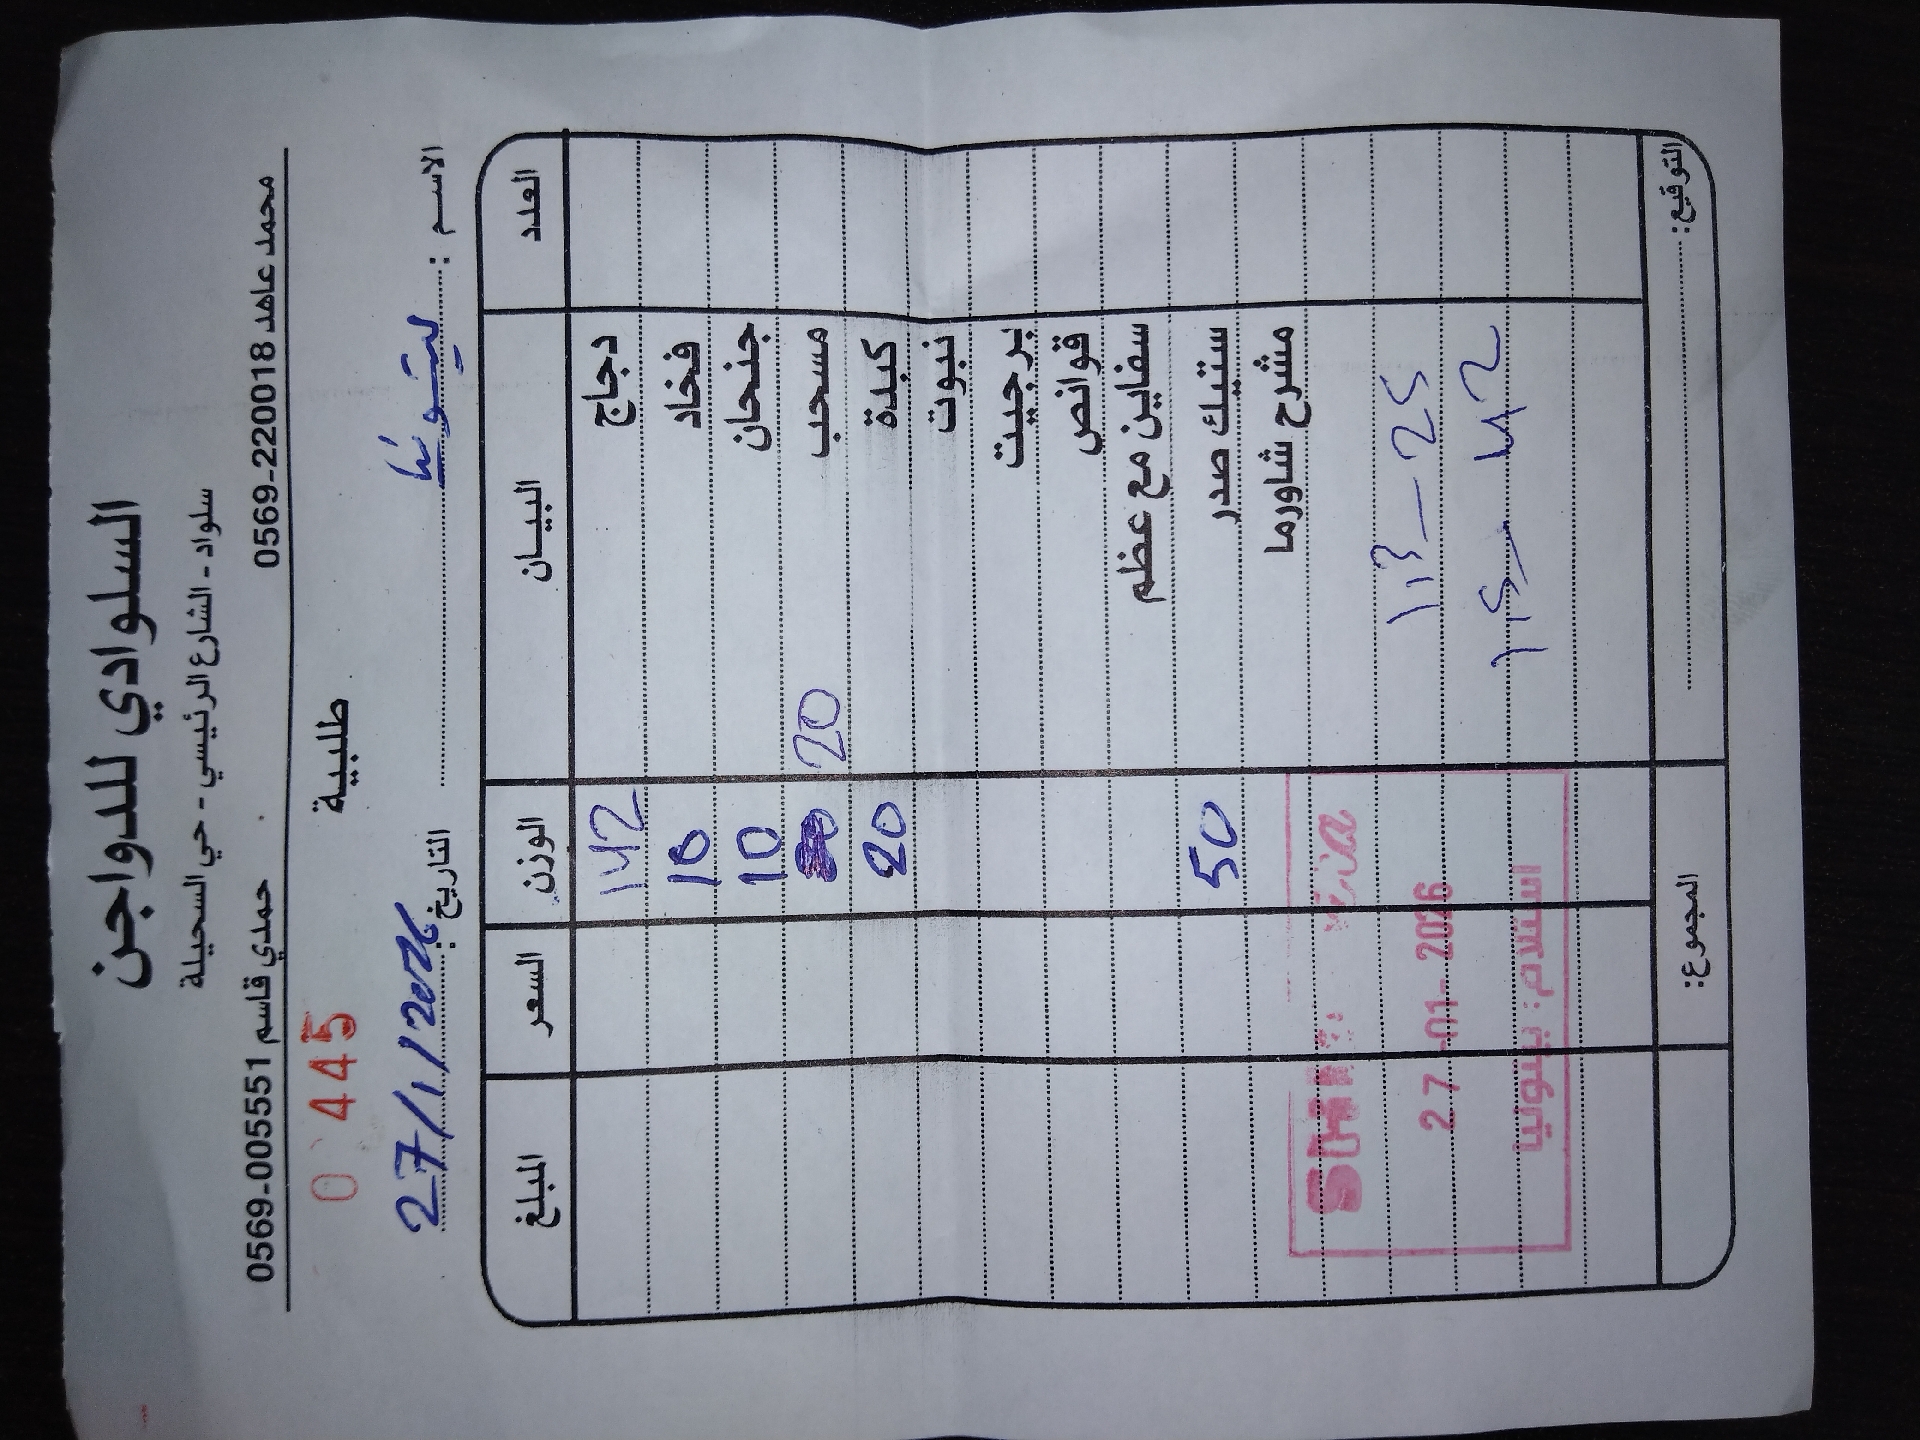 السلوادي للدواجن
سلواد - الشارع الرئيسي - حي السحيلة
محمد عاهد 0569-220018 حمدي قاسم 0569-005551
طلبية
0 445
الاسم : التاريخ: 27/1/2026
العدد البيان الوزن السعر المبلغ
دجاج 142
فخاد 10
جنحان 10
مسحب 20
كبدة 20
نبوت
برجيت
قوانص
سفاين مع عظم
ستيك صدر 50
مشرح شاورما
27-01-2026
استلام: بيتونيا
التوقيع: المجموع: